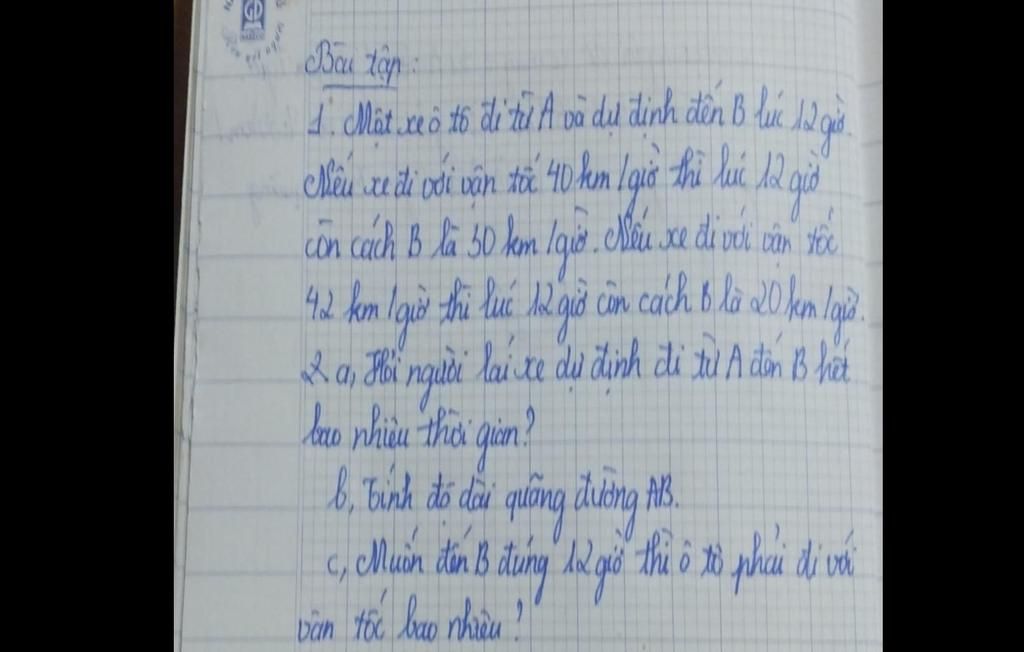 Bài tập:
1. Một xe ô tô đi từ A và dự định đến B lúc 12 giờ.
Nếu xe đi với vận tốc 40 km/giờ thì lúc 12 giờ
còn cách B là 30 km/giờ. Nếu xe đi với vận tốc
42 km/giờ thì lúc 12 giờ còn cách B là 20 km/giờ.
2 a, Hỏi người lái xe dự định đi từ A đến B hết
bao nhiêu thời gian?
b, Tính độ dài quãng đường AB.
c, Muốn đến B đúng 12 giờ thì ô tô phải đi với
vận tốc bao nhiêu?